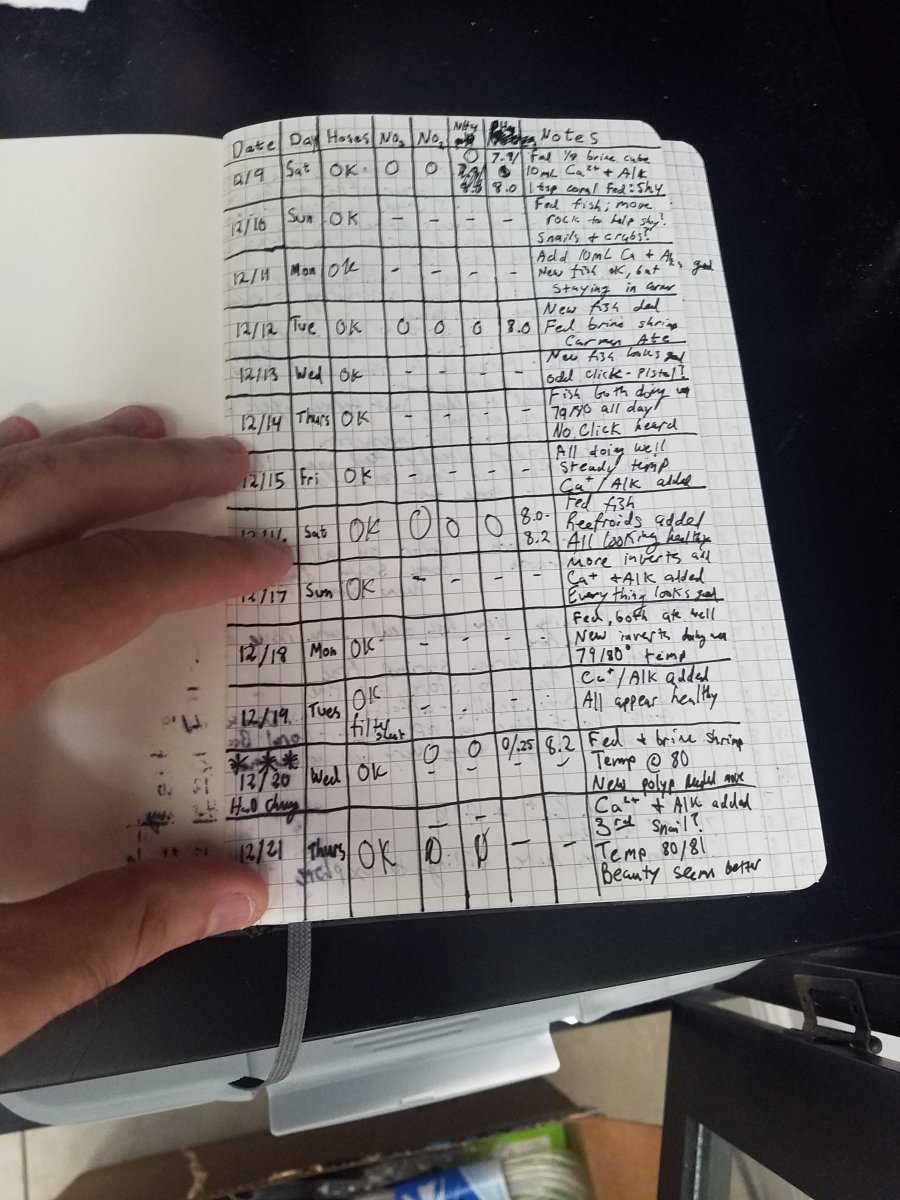 Date Day Hoses NO₃ NO₂ NH₄ Notes
12/9 Sat OK 0 0 0 7.9/ 8.0 Fed 1/8 brine cube
10mL Ca²⁺ + Alk
1 tsp coral Fed: Shy
12/10 Sun OK - - - - Fed fish; move
rock to help shy?
Snails + crabs?
12/11 Mon OK - - - - Add 10mL Ca + Alk, good
New fish OK, but
staying in corner
12/12 Tue OK 0 0 0 8.0 New fish died
Fed brine shrimp
Carmen Ate
12/13 Wed OK - - - - New fish looks good
odd click - Pistol?
12/14 Thurs OK - - - - Fish both doing well
79/80 all day
No Click heard
12/15 Fri OK - - - - All doing well
Steady temp
Ca⁺/Alk added
Sat OK 0 0 0 8.0- 8.2 Fed fish
Reefroids added
All looking healthy
12/17 Sun OK - - - - More inverts add
Ca⁺ + Alk added
Everything looks good
12/18 Mon OK - - - - Fed, both ate well
New inverts doing well
79/80° temp
12/19 Tues OK - - - - Ca⁺/Alk added
filter All appear healthy
***
12/20 Wed OK 0 0 0/.25 8.2 Fed + brine shrimp
Temp @ 80
H₂O Chng New polyp
12/21 Thurs OK - - - - Ca²⁺ + Alk added
3rd Snail?
Temp 80/81
Beauty seems better